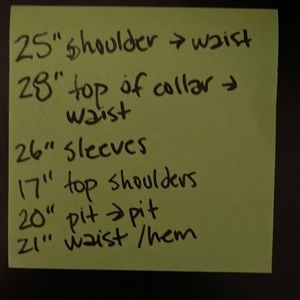 25" shoulder → waist
28" top of collar →
waist
26" sleeves
17" top shoulders
20" pit → pit
21" waist /hem